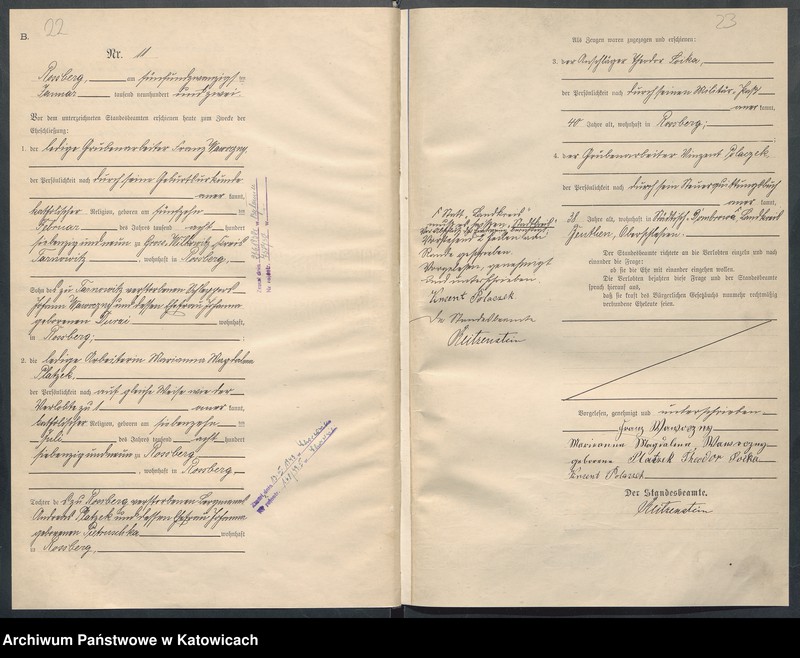 B. 22
Nr. 11
Rossberg, am fünfundzwanzigsten
Januar tausend neunhundert und zwei.
Vor dem unterzeichneten Standesbeamten erschienen heute zum Zwecke der
Eheschließung:
1. der ledige Grubenarbeiter Franz Wawrzny,
der Persönlichkeit nach durch seine Geburtsurkunde
aner kannt,
katholischer Religion, geboren am fünfzehnten
Februar des Jahres tausend acht hundert
siebenzig und neun zu Gross-Wilkowitz, Kreis
Tarnowitz, wohnhaft in Rossberg,
Sohn des zu Tarnowitz verstorbenen
Johann Wawrzny und dessen Ehefrau Johanna
geborenen wohnhaft
in Rossberg;
2. die ledige Arbeiterin Marianna Magdalena
Platzek,
der Persönlichkeit nach auf gleiche Weise wie der
Verlobte zu 1 aner kannt,
katholischer Religion, geboren am siebenzehnten
Juli des Jahres tausend acht hundert
siebenzig und neun zu Rossberg
, wohnhaft in Rossberg
Tochter des zu Rossberg verstorbenen Bergmanns
Andreas Platzek und dessen Ehefrau Johanna
geborenen wohnhaft
in Rossberg,
23
Als Zeugen waren zugezogen und erschienen:
3. der Anschläger Theodor Socka,
der Persönlichkeit nach durch seinen Militär-Pass
aner kannt,
40 Jahre alt, wohnhaft in Rossberg;
4. der Grubenarbeiter Vinzent Polaczek,
der Persönlichkeit nach durch sein Steuerquittungsbuch
aner kannt,
38 Jahre alt, wohnhaft in Städtisch-Dombrowa, Landkreis
Beuthen, Oberschlesien.
Der Standesbeamte richtete an die Verlobten einzeln und nach
einander die Frage:
ob sie die Ehe mit einander eingehen wollen.
Die Verlobten bejahten diese Frage und der Standesbeamte
sprach hierauf aus,
daß sie kraft des Bürgerlichen Gesetzbuchs nunmehr rechtmäßig
verbundene Eheleute seien.
Statt „Landkreis"
muss es heissen „Stadtkreis".
Vorstehend 2 Zeilen am
Rande geschrieben.
Vorgelesen, genehmigt
und unterschrieben.
Vincent Polaczek
Der Standesbeamte
Reitzenstein
Vorgelesen, genehmigt und unterschrieben
Franz Wawrczny
Marianna Magdalena Wawreczny
geborene Platzek Theodor Socka
Vincent Polaczek
Der Standesbeamte.
Reitzenstein
Archiwum Państwowe w Katowicach